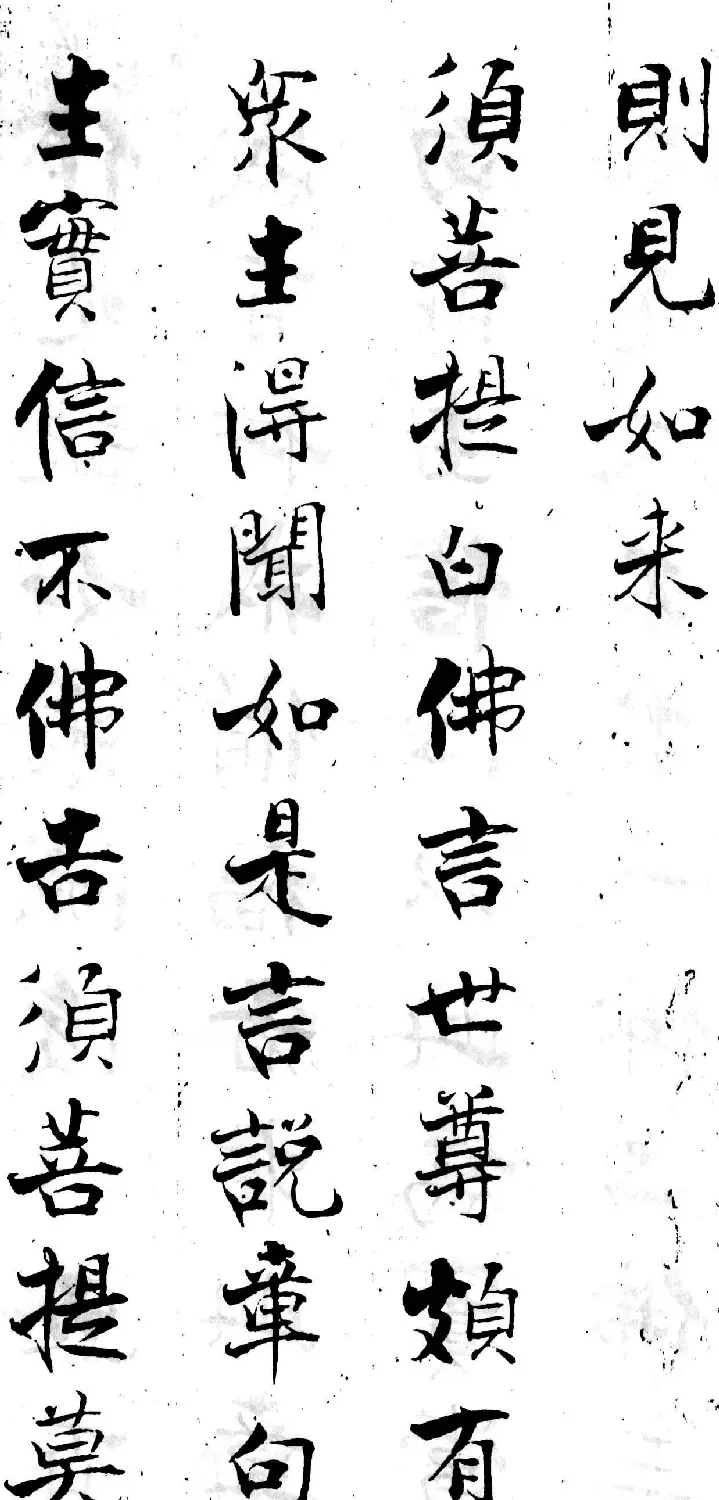 則見如来
須菩提白佛言世尊頗有
衆生得聞如是言說章句
生實信不佛告須菩提莫